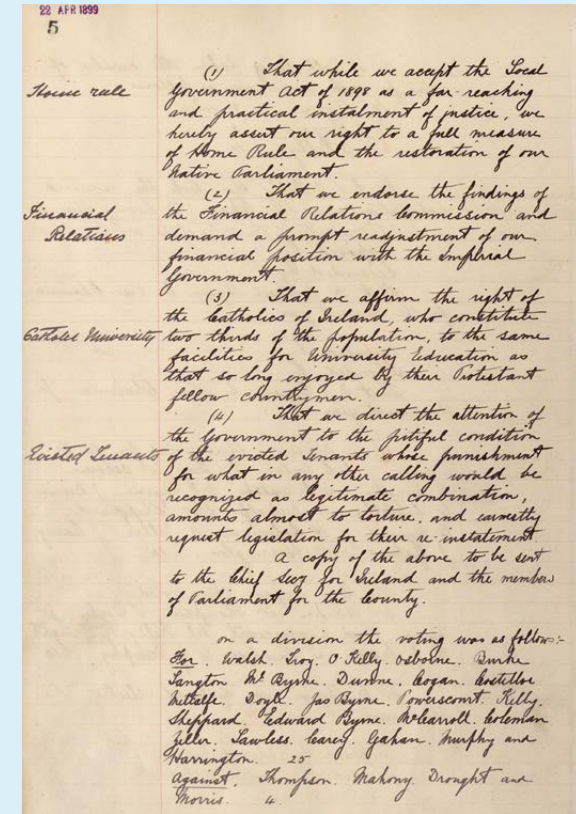 22 APR 1899
5
(1) That while we accept the Local
Home rule
Government Act of 1898 as a far-reaching
and practical instalment of justice, we
hereby assert our right to a full measure
of Home Rule and the restoration of our
Native Parliament.
(2) That we endorse the findings of
Financial
Relations
the Financial Relations Commission and
demand a prompt readjustment of our
financial position with the Imperial
Government.
(3) That we affirm the right of
the Catholics of Ireland, who constitute
Catholic University
two thirds of the population, to the same
facilities for University Education as
that so long enjoyed by their Protestant
fellow countrymen.
(4) That we direct the attention of
the Government to the pitiful condition
Evicted Tenants
of the evicted Tenants whose punishment
for what in any other calling would be
recognized as legitimate combination,
amounts almost to torture, and earnestly
request legislation for their re-instatement
A copy of the above to be sent
to the Chief Secy for Ireland and the members
of Parliament for the County.
on a division the voting was as follows:-
For. Walsh. Troy. O'Kelly. Osborne. Burke
Langton Byrne. Dunne. Cogan. Costelloe
Metcalfe. Doyle. Jas Byrne. Powerscourt. Kelly.
Sheppard. Edward Byrne. McCarroll. Coleman
Lawless. Carey. Gahan. Murphy and
Harrington. 25
Against. Thompson. Mahony. Drought and
Morris. 4.